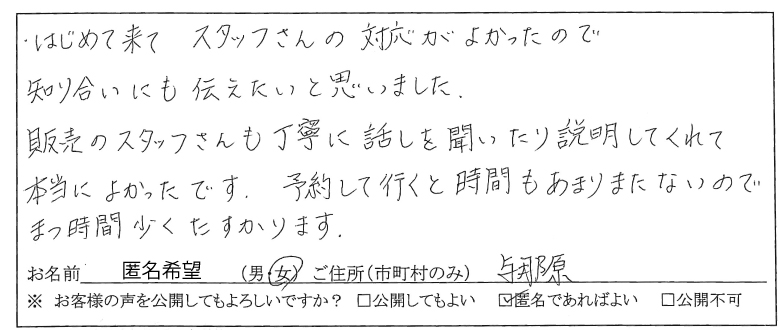 ・はじめて来て スタッフさんの 対応が よかったので
知り合いにも 伝えたいと思いました.
販売のスタッフさんも丁寧に 話しを聞いたり説明してくれて
本当に よかったです. 予約して行くと時間もあまりまたないので
まつ時間少くたすかります.
お名前 匿名希望 (男・女) ご住所(市町村のみ) 与那原
※ お客様の声を公開してもよろしいですか? □公開してもよい ☑匿名であればよい □公開不可